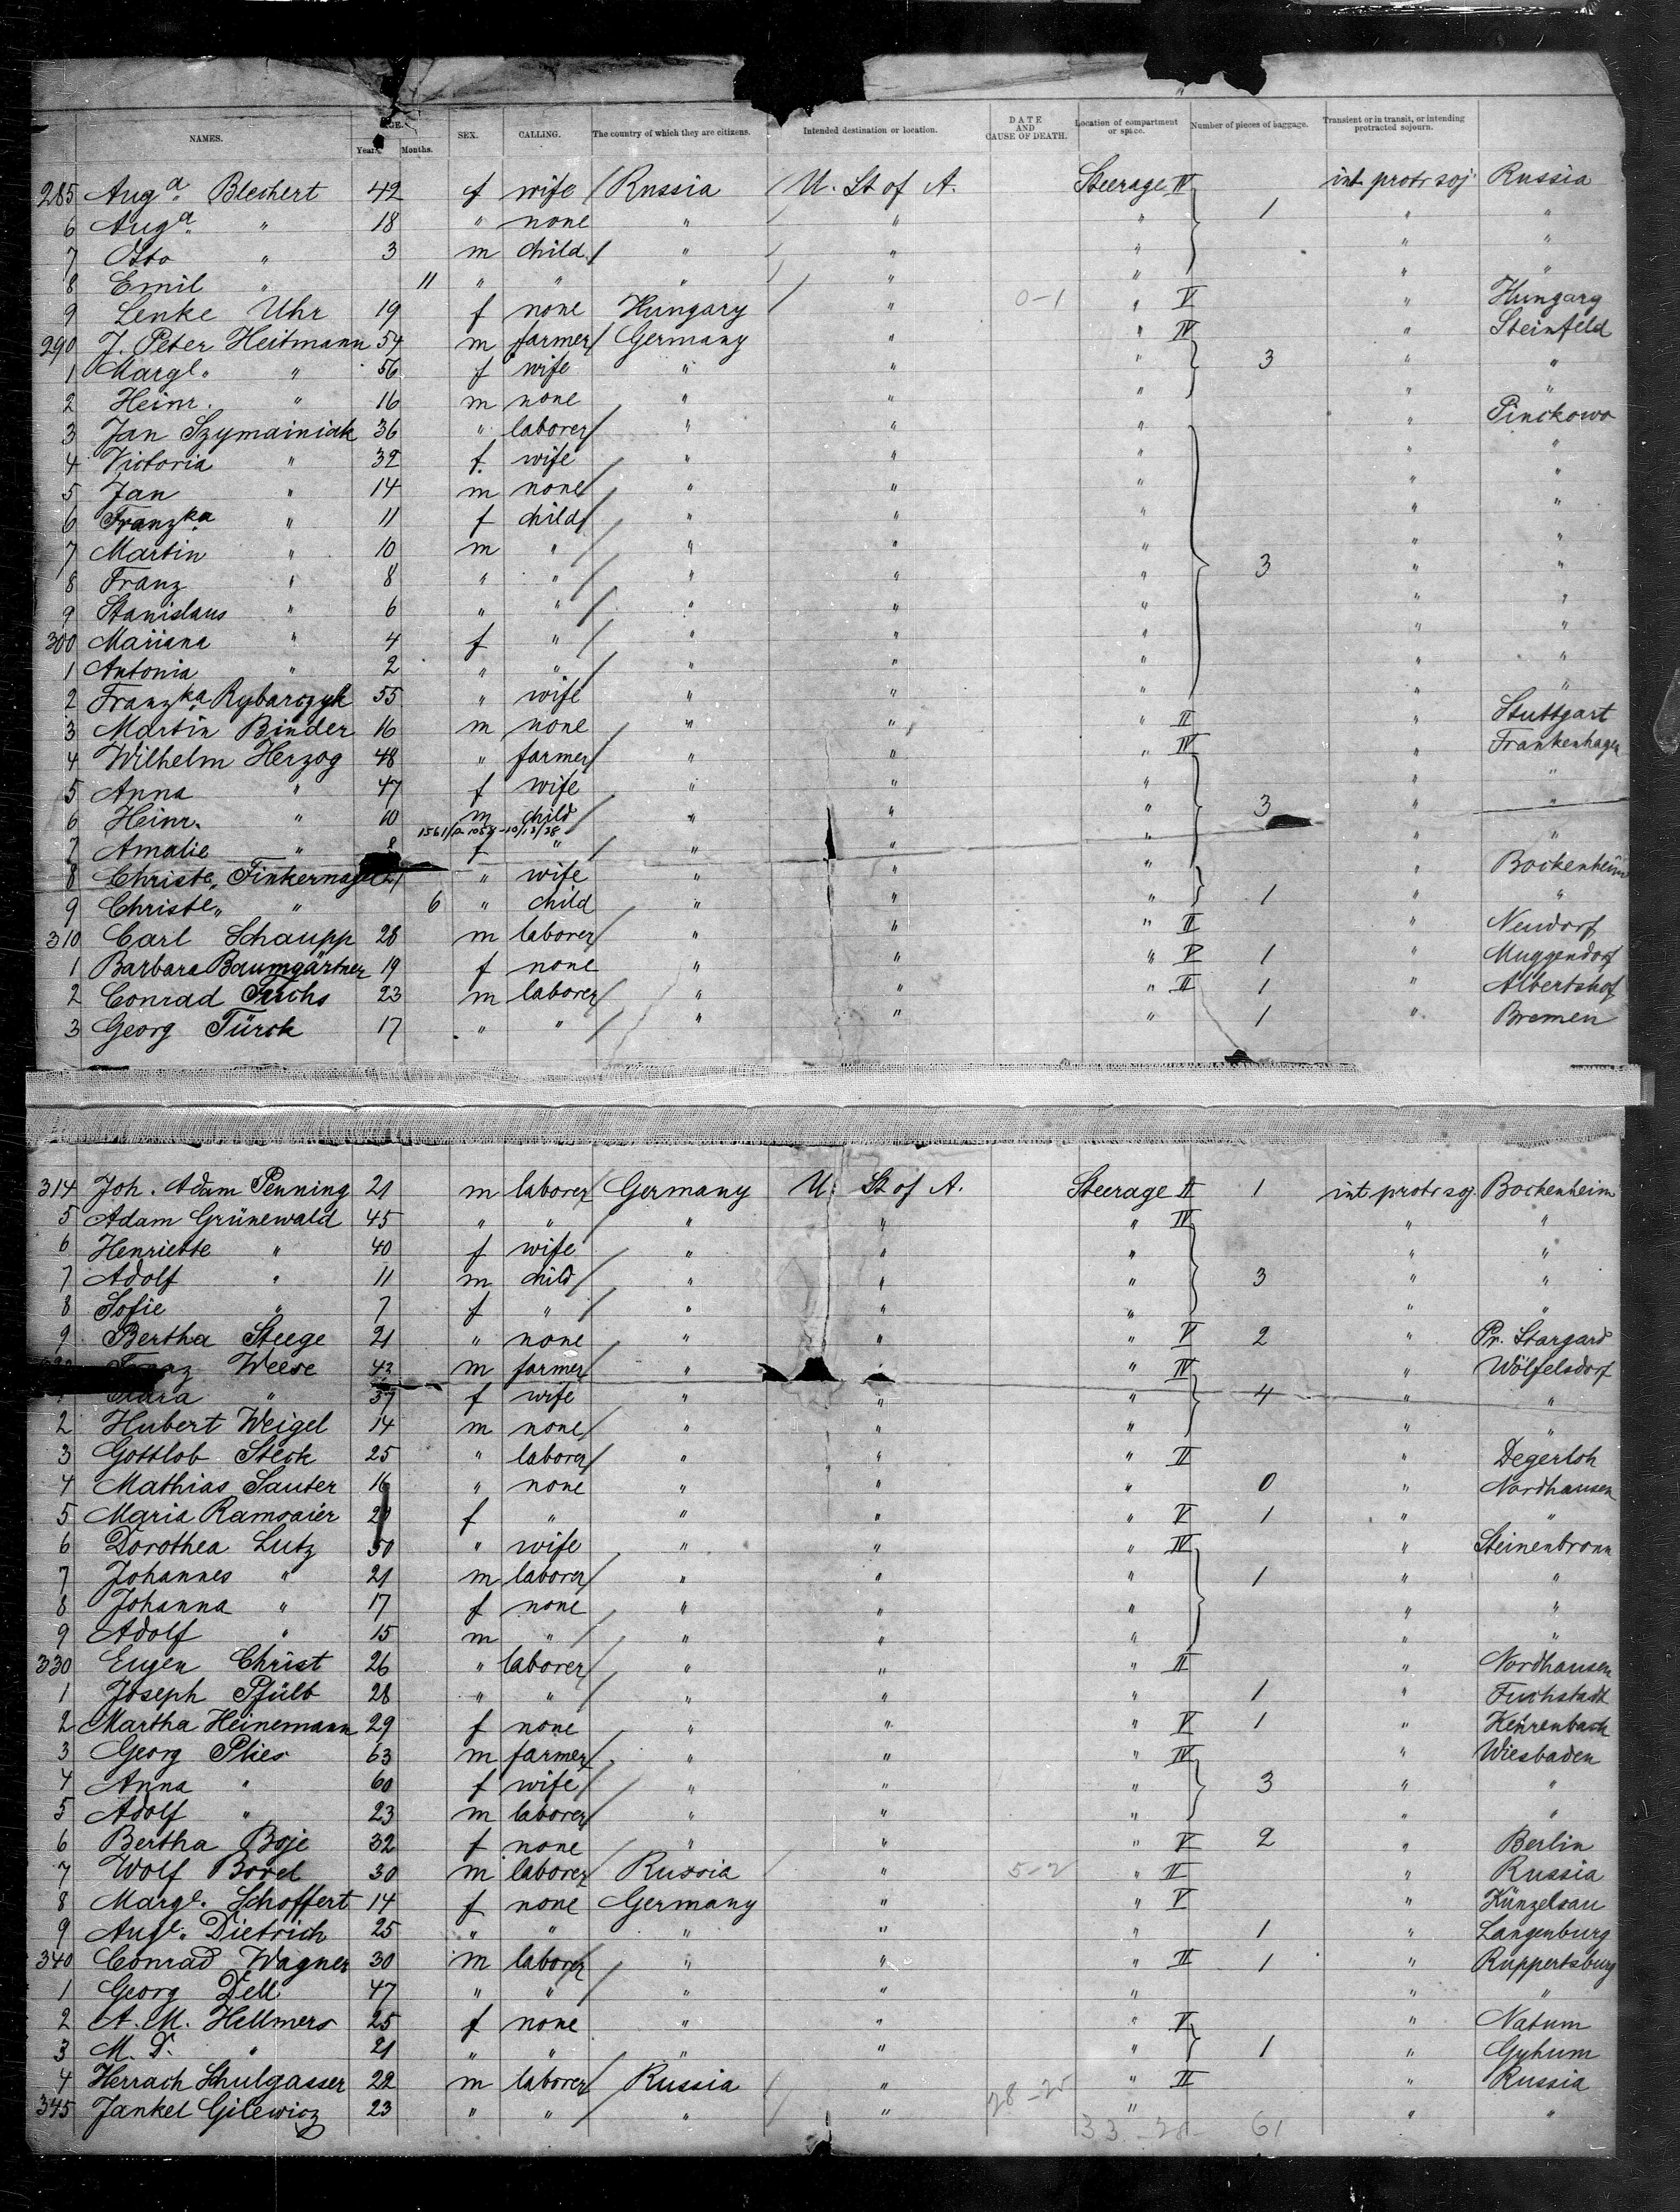 NAMES. AGE. Years. Months. SEX. CALLING. The country of which they are citizens. Intended destination or location. DATE AND CAUSE OF DEATH. Location of compartment or space. Number of pieces of baggage. Transient or in transit, or intending protracted sojourn.
285 Aug.a Blechert 42 f wife / Russia / U. St of A. Steerage IV int protr soj Russia
6 Aug.a " 18 " none " / " " 1 " "
7 Otto " 3 m child / " / " " " "
8 Emil " 11 " " " / " " " "
9 Lenke Uhr 19 f none Hungary / " 0-1 " V " Hungary
290 J. Peter Heitmann 54 m farmer / Germany " " IV " Steinfeld
1 Marg.e " 56 f wife " " " 3 " "
2 Heinr. " 16 m none " " " " "
3 Jan Szymainiak 36 " laborer / " " " " Pinckowo
4 Victoria " 32 f wife " " " " "
5 Jan " 14 m none / " " " " "
6 Franzka " 11 f child / " " " " "
7 Martin " 10 m " / " " " " "
8 Franz " 8 " " / " " " 3 " "
9 Stanislaus " 6 " " / " " " " "
300 Mariana " 4 f " / " " " " "
1 Antonia " 2 " " / " " " " "
2 Franzka Rybarczyk 55 " wife " " " " "
3 Martin Binder 16 m none / " " " II " Stuttgart
4 Wilhelm Herzog 48 " farmer / " " " IV " Frankenhagen
5 Anna " 47 f wife " " " " "
6 Heinr. " 10 m child / " " " 3 " "
7 Amalie " 8 f " / " " " " "
8 Christe. Finkernagel 21 " wife " " " " Bockenheim
9 Christe. " 6 " child " " " 1 " "
310 Carl Schaupp 28 m laborer / " " " II " Neudorf
1 Barbara Baumgärtner 19 f none " " " V 1 " Muggendorf
2 Conrad Fuchs 23 m laborer / " " " II 1 " Albertshof
3 Georg Türck 17 " " / " " " 1 " Bremen
314 Joh. Adam Penning 21 m laborer / Germany U. St of A. Steerage II 1 int protr soj. Bockenheim
5 Adam Grünewald 45 " " / " " " IV " "
6 Henriette " 40 f wife " " " " "
7 Adolf " 11 m child / " " " 3 " "
8 Sofie " 7 f " / " " " " "
9 Bertha Steege 21 " none " " " V 2 " Pr. Stargard
Weese 42 m farmer / " " " IV " Wölfelsdorf
" 37 f wife " " " 4 " "
2 Hubert Weigel 14 m none / " " " " "
3 Gottlob Steck 25 " laborer / " " " II " Degerloh
4 Mathias Sauter 16 " none " " " 0 " Nordhausen
5 Maria Ramsaier f " " " " V 1 " "
6 Dorothea Lutz 50 " wife " " " IV " Steinenbronn
7 Johannes " 21 m laborer / " " " 1 " "
8 Johanna " 17 f none " " " " "
9 Adolf " 15 m " / " " " " "
330 Eugen Christ 26 " laborer / " " " II " Nordhausen
1 Joseph Pfülb 28 " " / " " " 1 " Fuchstadt
2 Martha Heinemann 29 f none " " " V 1 " Kehrenbach
3 Georg Plies 63 m farmer / " " " IV " Wiesbaden
4 Anna " 60 f wife / " " " 3 " "
5 Adolf " 23 m laborer / " " " " "
6 Bertha Boje 32 f none " " " V 2 " Berlin
7 Wolf Borel 30 m laborer / Russia / " 5-2 " II " Russia
8 Marg.e. Schoffert 14 f none Germany " " V " Künzelsau
9 Aug.e. Dietrich 25 " " " " " 1 " Langenburg
340 Conrad Wagner 30 m laborer / " " " II 1 " Ruppertsburg
1 Georg Dell 47 " " / " " " " "
2 A. M. Hellmers 25 f none " " " V " Natum
3 M. D. " 21 " " " " " 1 " Gyhum
4 Herrach Schulgasser 22 m laborer / Russia / " " II " Russia
345 Jankel Gilewicz 23 " " / " / " 28-25 " " "
61